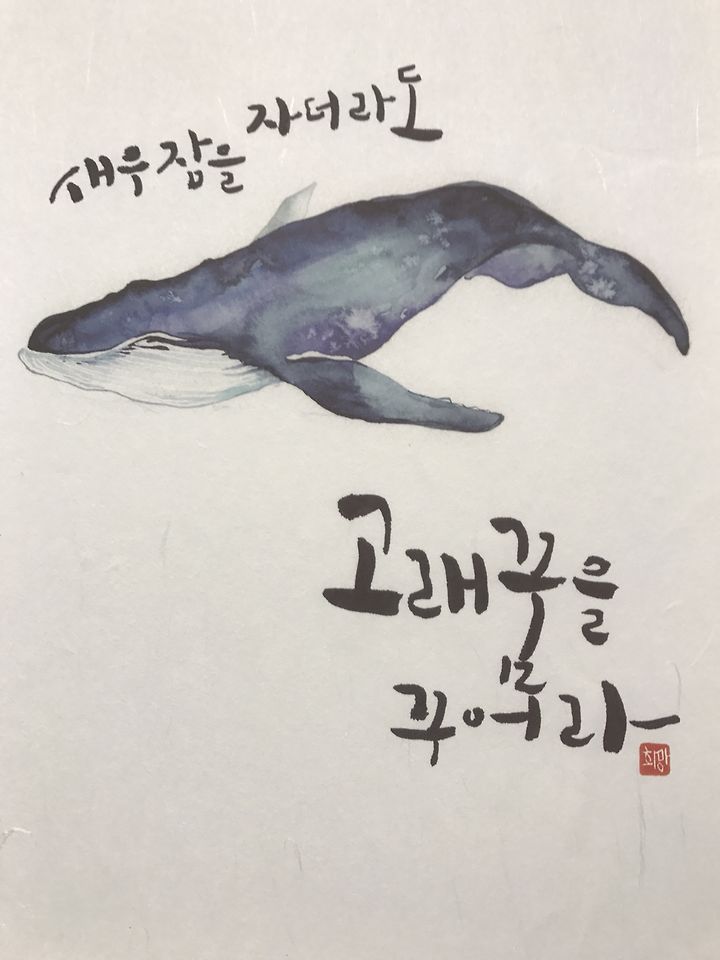 새우잠을 자더라도
고래꿈을
꾸어라
희망